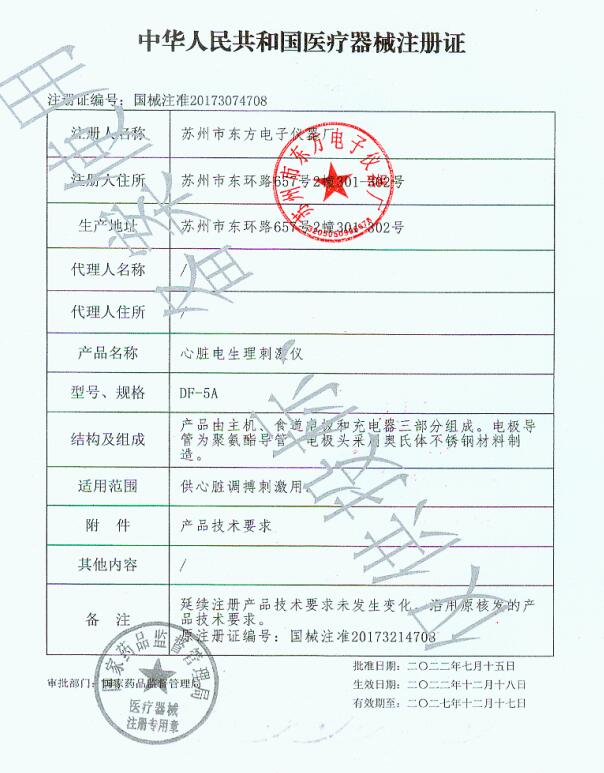 中华人民共和国医疗器械注册证
注册证编号：国械注准20173074708
注册人名称 苏州市东方电子仪器厂
注册人住所 苏州市东环路657号2幢301-302号
生产地址 苏州市东环路657号2幢301-302号
代理人名称 /
代理人住所 /
产品名称 心脏电生理刺激仪
型号、规格 DF-5A
结构及组成 产品由主机、食道电极和充电器三部分组成。电极导
管为聚氨酯导管，电极头采用奥氏体不锈钢材料制
造。
适用范围 供心脏调搏刺激用。
附 件 产品技术要求
其他内容 /
备 注 延续注册产品技术要求未发生变化，沿用原核发的产
品技术要求。
原注册证编号：国械注准20173214708
审批部门：国家药品监督管理局
批准日期：二〇二二年七月十五日
生效日期：二〇二二年十二月十八日
有效期至：二〇二七年十二月十七日
苏州市东方电子仪器厂
国家药品监督管理局
医疗器械
注册专用章
仅供投标、备案使用